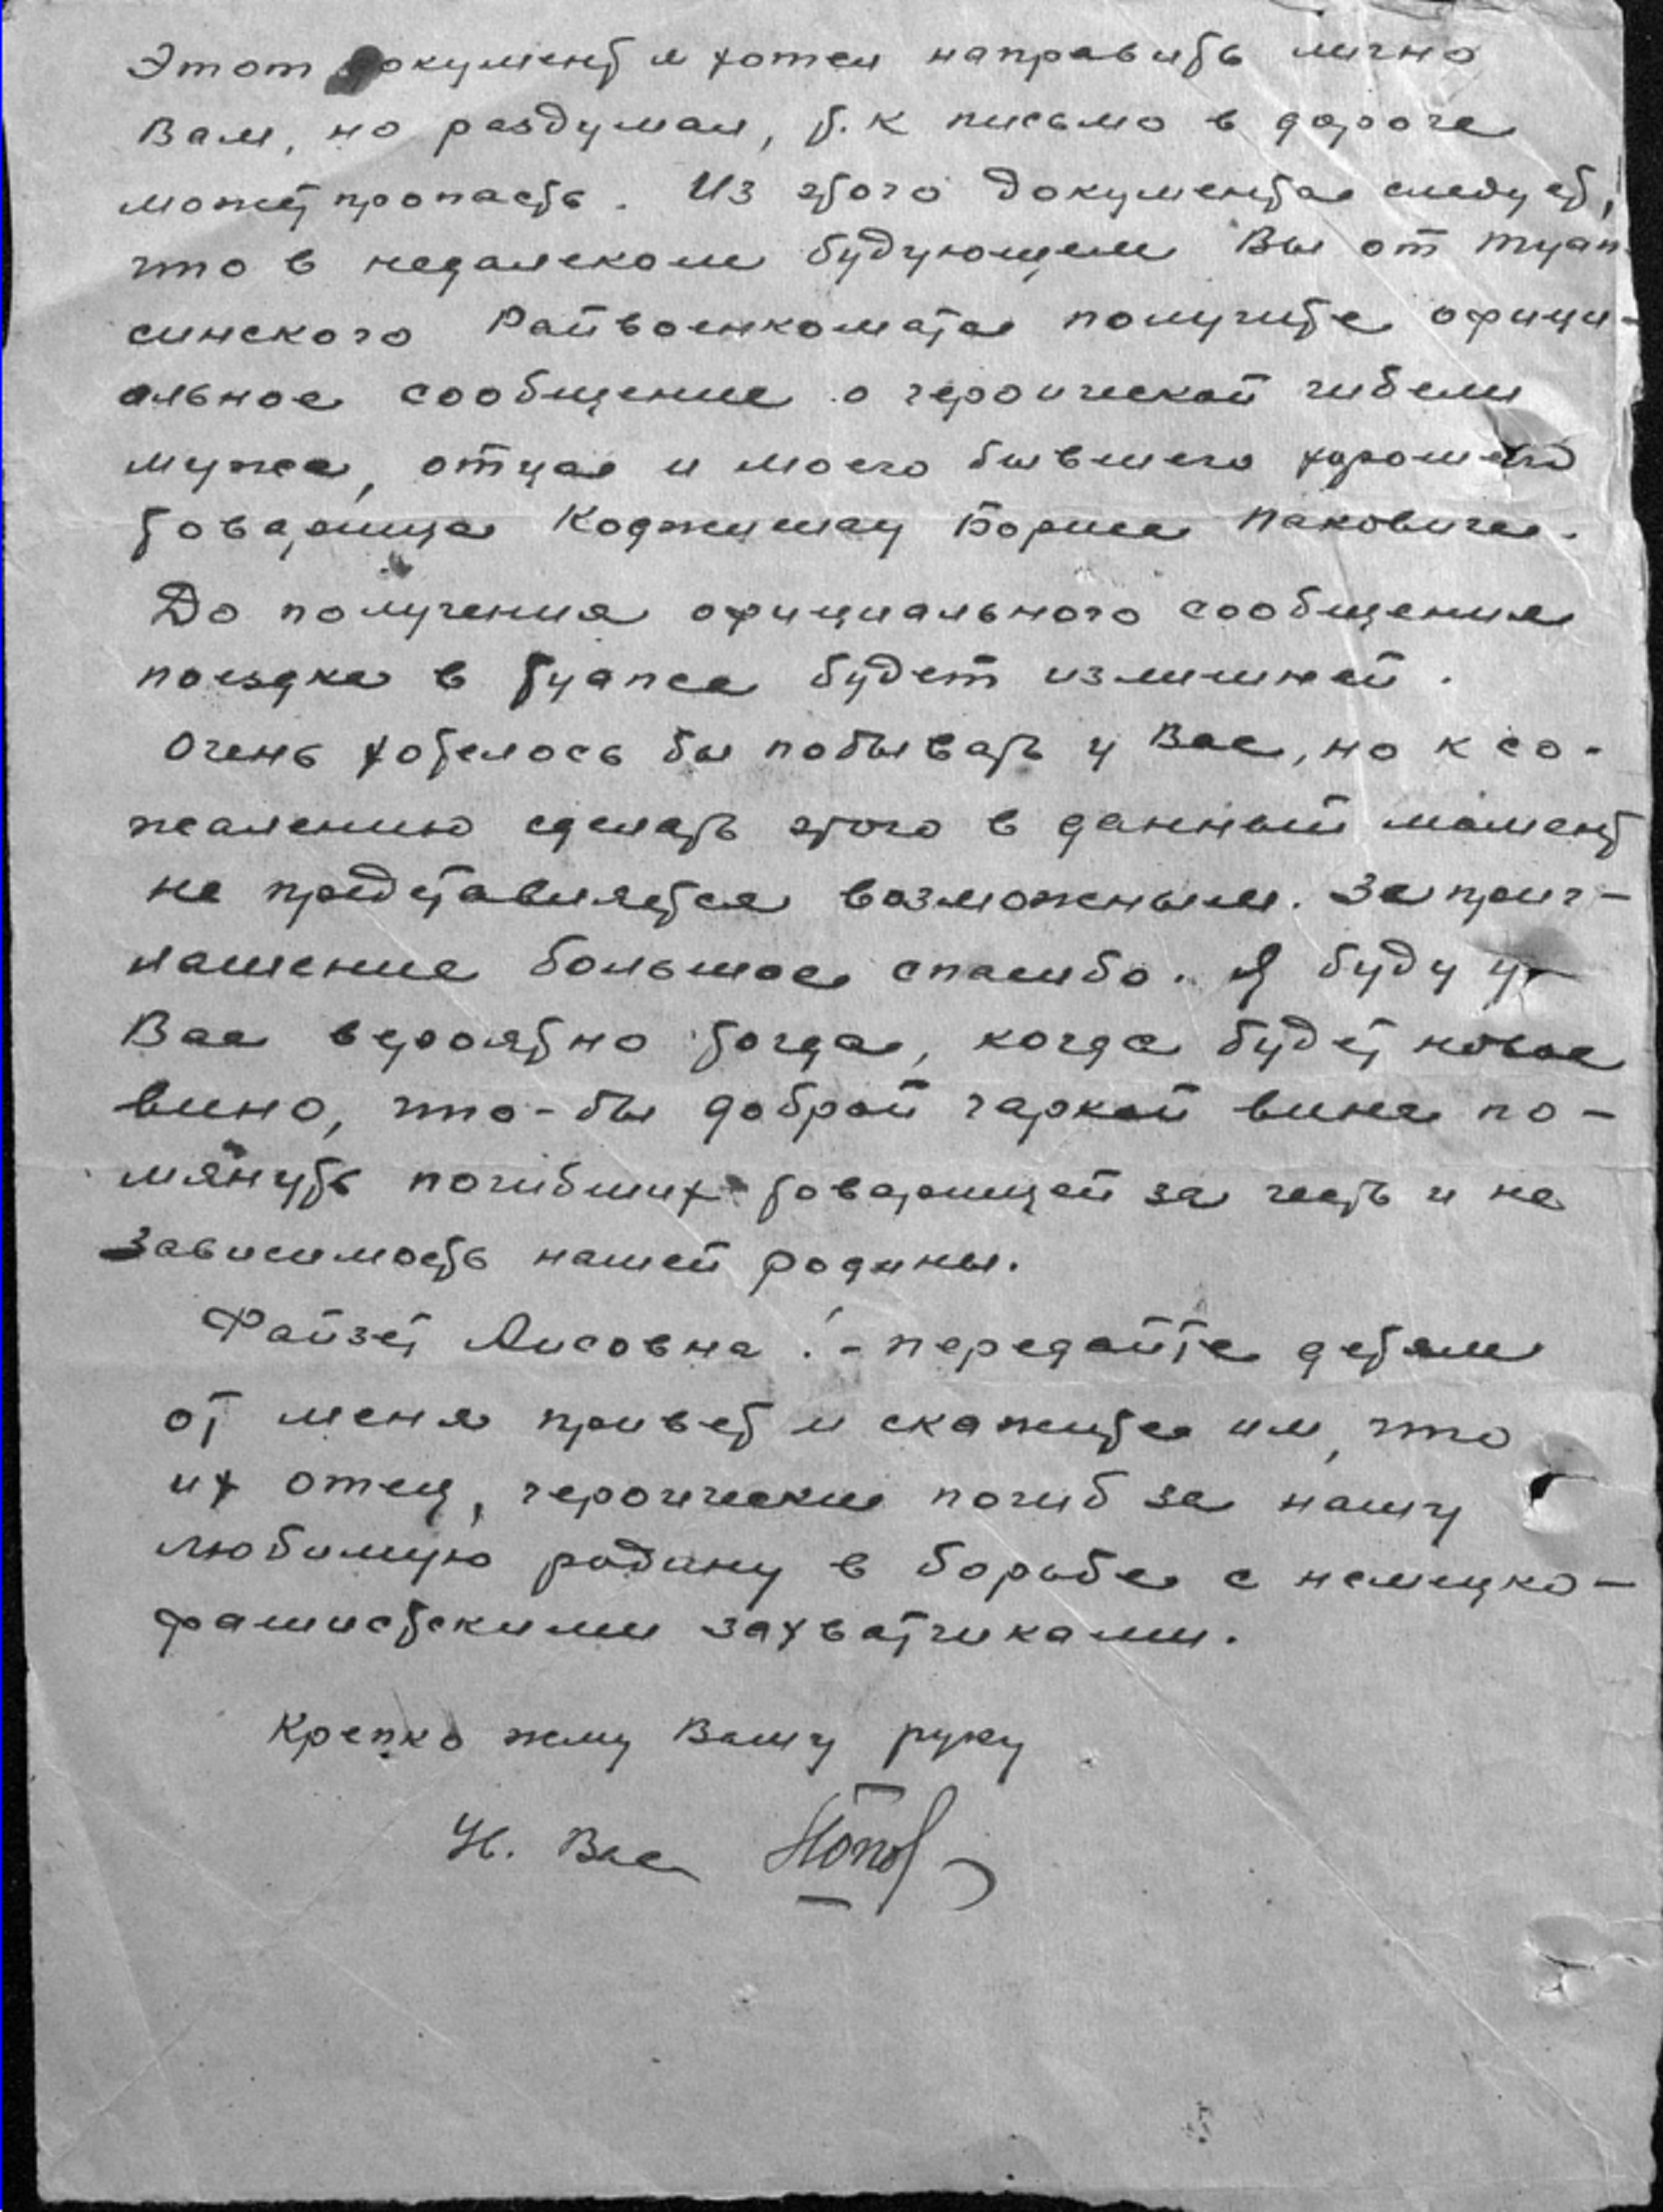 Этот документ я хотел направить лично
Вам, но раздумал, т.к письмо в дороге
может пропасть. Из этого документа следует,
что в недалеком будующем Вы от Туап
синского Райвоенкомата получите офици-
альное сообщение о героической гибели
мужа, отца и моего бывшего хорошего
товарища Коджешау Бориса Паковича.
До получения официального сообщения
поездка в Туапсе будет излишней.
Очень хотелось бы побывать у Вас, но к со-
жалению сделать этого в данный момент
не представляется возможным. За приг-
лашение большое спасибо. Я буду у
Вас вероятно тогда, когда будет новое
вино, что-бы доброй чаркой вина по-
мянуть погибших товарищей за честь и не
зависимость нашей родины.
Файзет Аисовна! - передайте детям
от меня привет и скажите им, что
их отец, героически погиб за нашу
любимую родину в борьбе с немецко-
фашистскими захватчиками.
Крепко жму Вашу руку
Ув. Вас Попов